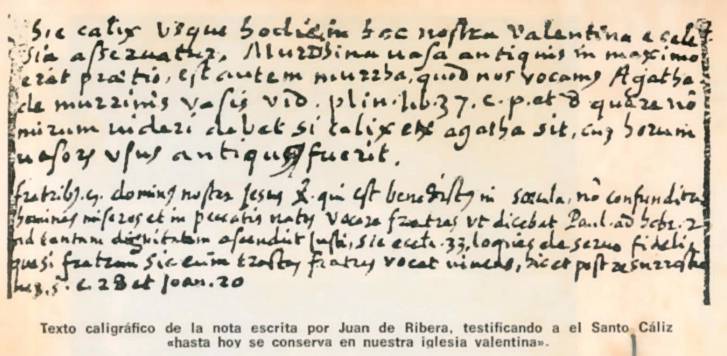 Hic calix usque hodie in hac nostra Valentina eccle
sia asservatur, Murrhina vasa antiquis in maximo
erāt prætio, est autem murrha, quod nos vocamus Agatha.
de murrinis vasis vid. plin. lib. 37. c. p. et 8 quare nō
mirum videri debet si calix ex agatha sit, cuȝ horum
vasorȝ usus antiquus fuerit.
fratribȝ. dominȝ noster Jesus qui est benedictȝ in sæcula, nō confunditur
homines miseros et in peccatis natos vocare fratres ut dicebat Paul. ad hebr. 2
ad tantam dignitatem justi, sic eccle. 33. loquēs de servo fideli,
quasi fratrem sic eum fratres vocat et post resurrectio
nes, c. 28 et Joan. 20
Texto caligráfico de la nota escrita por Juan de Ribera, testificando a el Santo Cáliz
«hasta hoy se conserva en nuestra iglesia valentina».